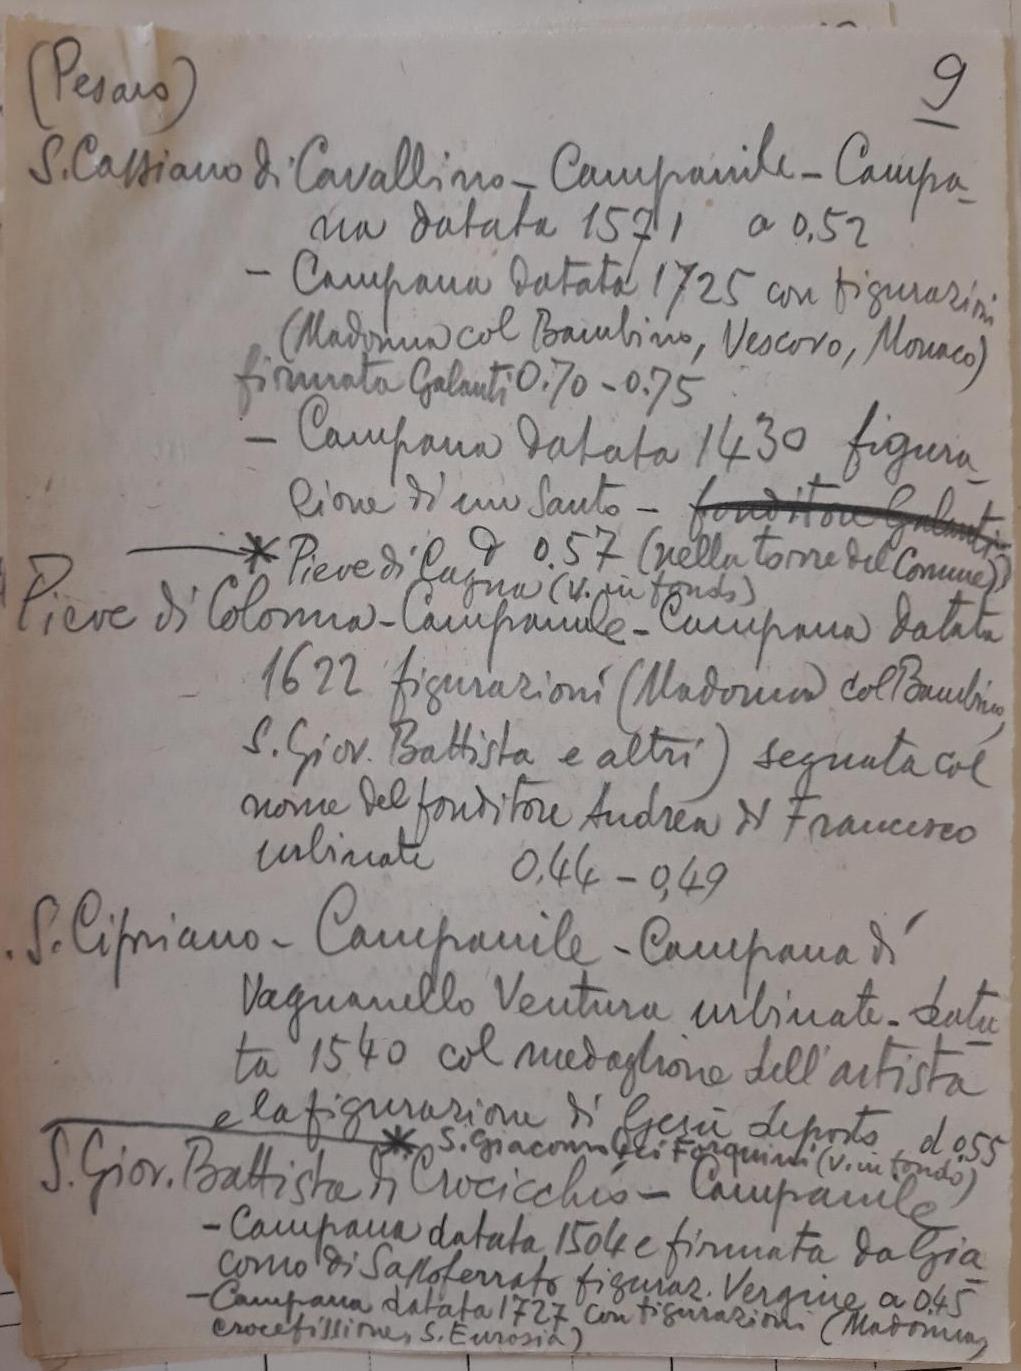 (Pesaro)
9
S. Cassiano di Cavallino - Campanile - Campa-
na datata 1571 a 0,52
- Campana datata 1725 con figurazioni
(Madonna col Bambino, Vescovo, Monaco)
firmata Galanti 0.70 - 0.75
- Campana datata 1430 figura-
zione di un Santo - fonditore Galanti
d 0.57 (nella torre del Comune)
* Pieve di Cagna (v. in fondo)
Pieve di Colonna - Campanile - Campana datata
1622 figurazioni (Madonna col Bambino,
S. Giov. Battista e altri) segnata col
nome del fonditore Andrea di Francesco
urbinate 0,44 - 0,49
S. Cipriano - Campanile - Campana di
Vagnanello Ventura urbinate - data-
ta 1540 col medaglione dell'artista
e la figurazione di Gesù deposto d 0.55
* S. Giacomo (v. in fondo)
S. Giov. Battista di Crocicchio - Campanile
- Campana datata 1504 e firmata da Gia-
como di Sassoferrato figuraz. Vergine a 0.45
- Campana datata 1727 con figurazioni (Madonna,
crocefissione, S. Eurosia)